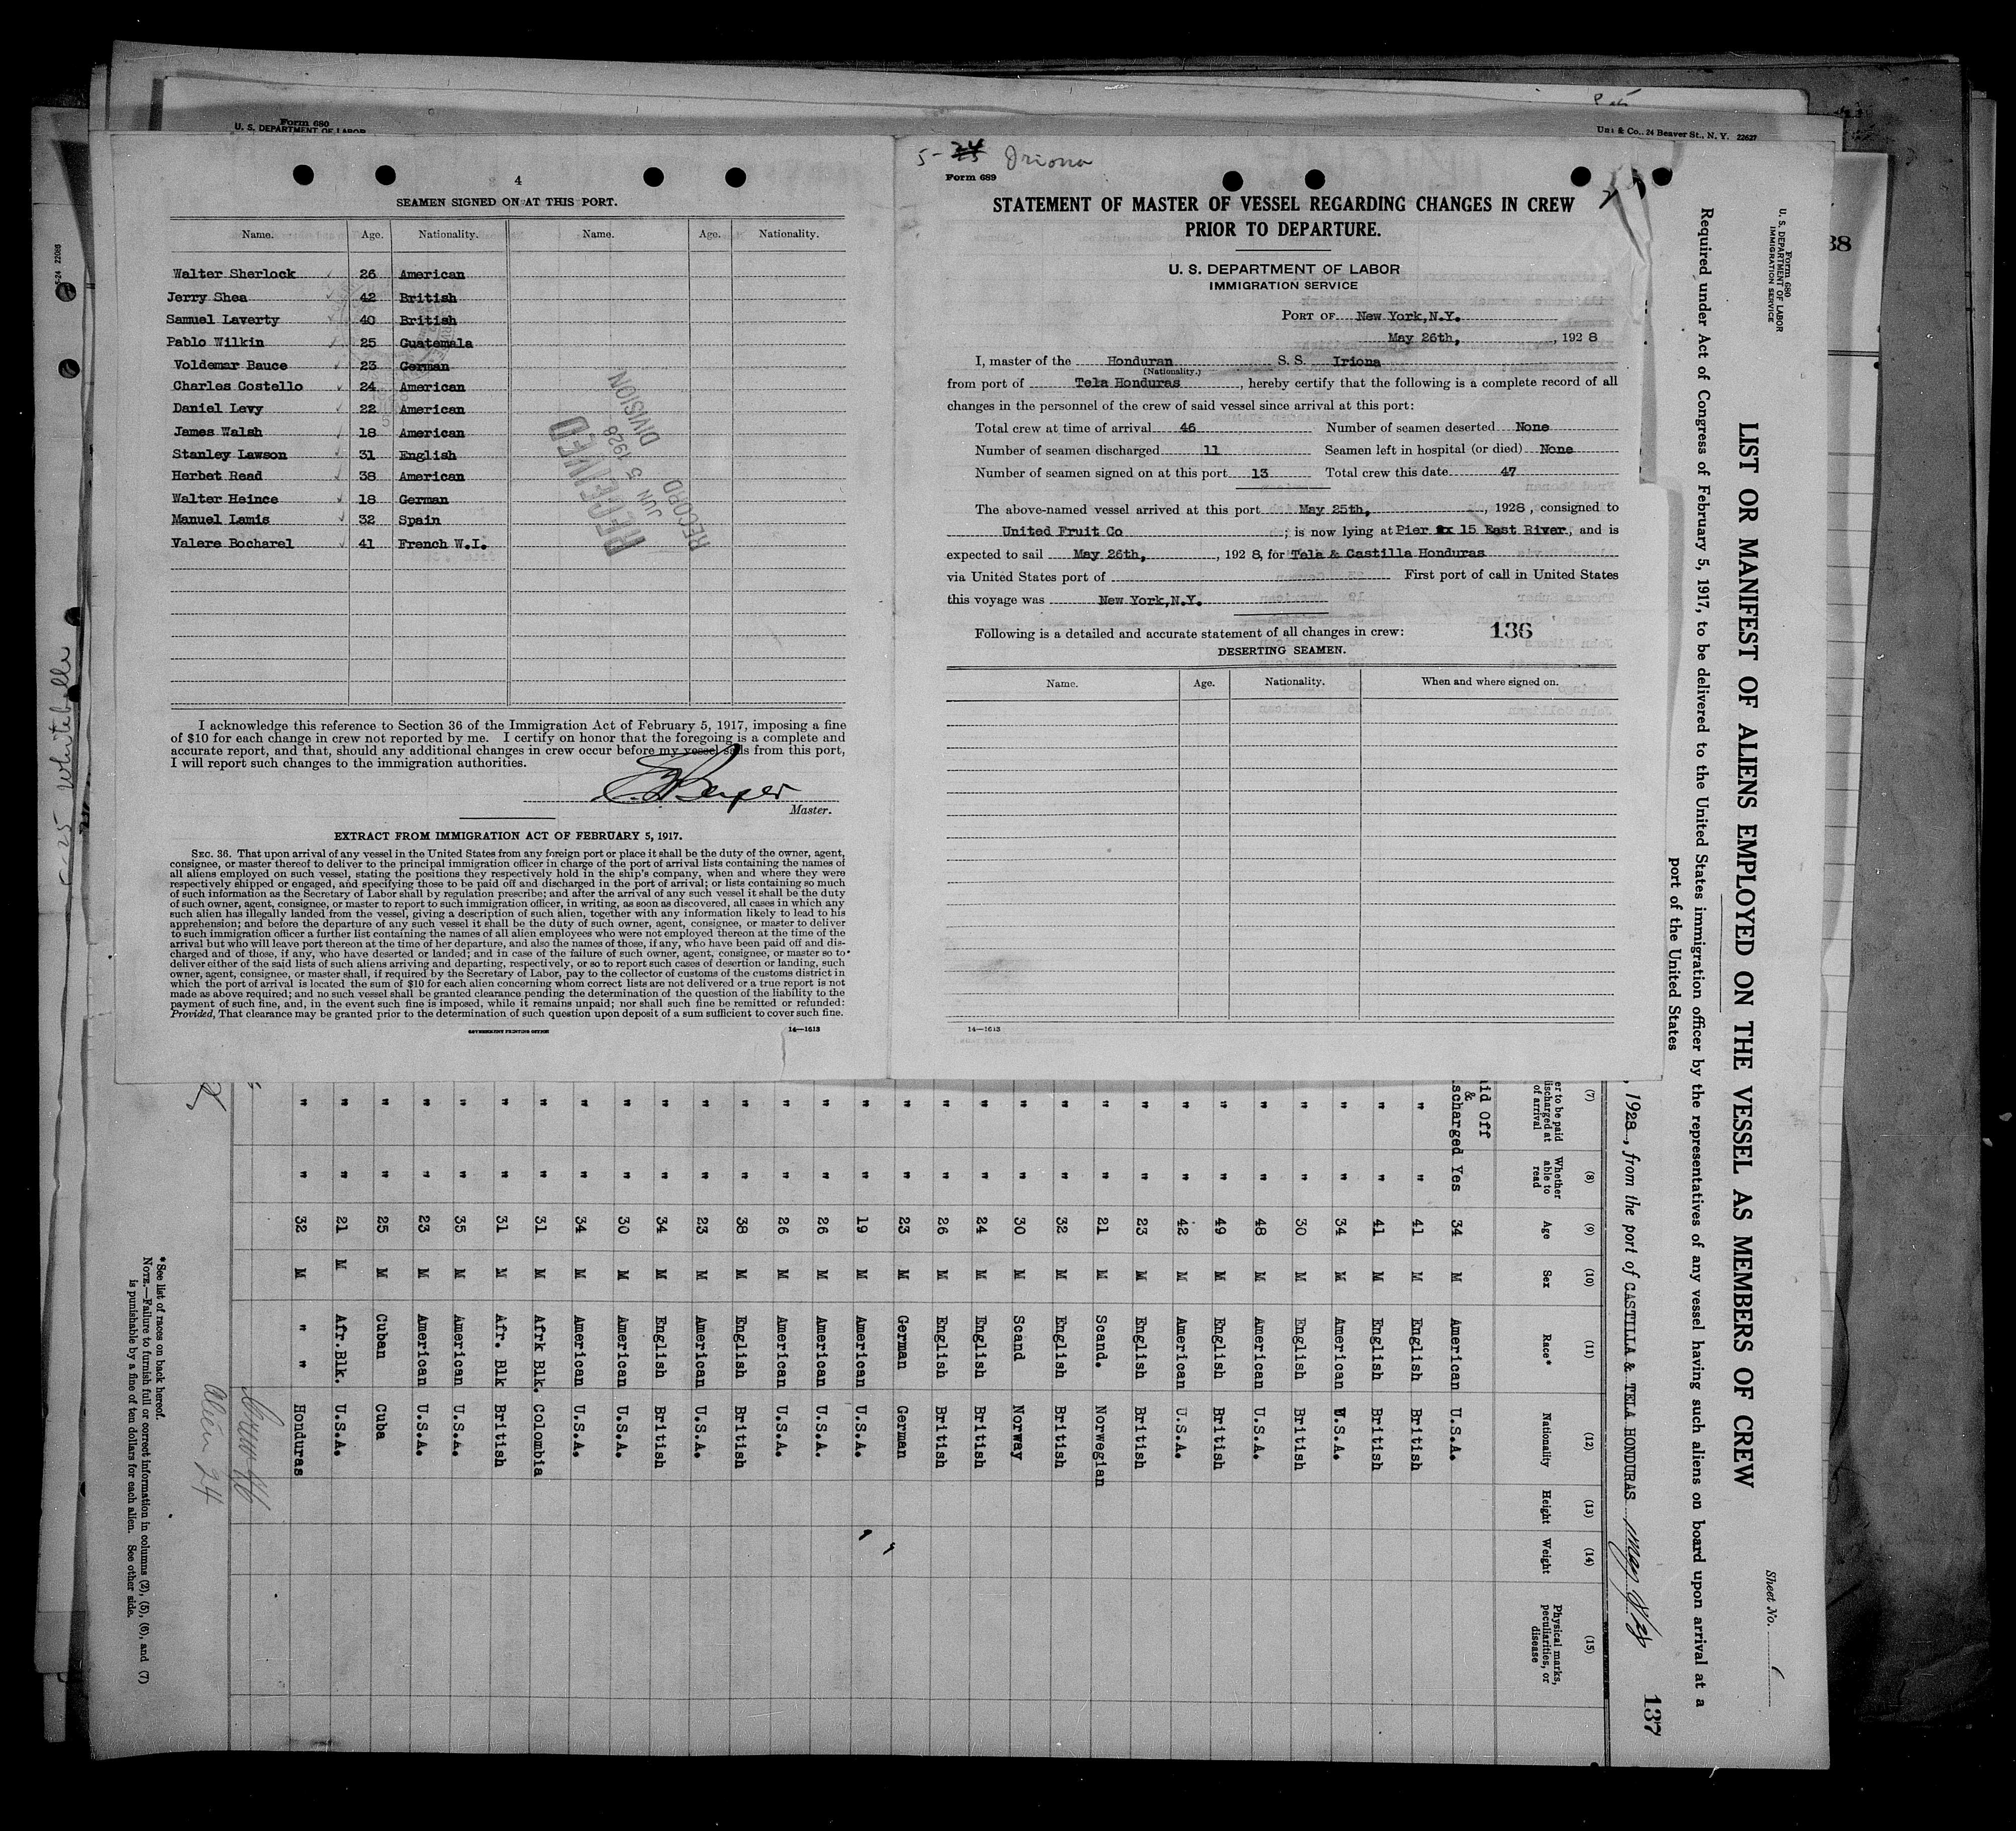 Form 680
U. S. DEPARTMENT OF LABOR
& Co., 24 Beaver St., N. Y. 22627
4
SEAMEN SIGNED ON AT THIS PORT.
Name. Age. Nationality. Name. Age. Nationality.
Walter Sherlock 26 American
Jerry Shea 42 British
Samuel Laverty 40 British
Pablo Wilkin 25 Guatemala
Voldemar Bauce 23 German
Charles Costello 24 American
Daniel Levy 22 American
James Walsh 18 American
Stanley Lawson 31 English
Herbet Read 38 American
Walter Heince 18 German
Manuel Lamis 32 Spain
Valere Bocharel 41 French W.I.
RECEIVED
JUN 5 1928
RECORD DIVISION
I acknowledge this reference to Section 36 of the Immigration Act of February 5, 1917, imposing a fine
of $10 for each change in crew not reported by me. I certify on honor that the foregoing is a complete and
accurate report, and that, should any additional changes in crew occur before my vessel sails from this port,
I will report such changes to the immigration authorities.
Master.
EXTRACT FROM IMMIGRATION ACT OF FEBRUARY 5, 1917.
SEC. 36. That upon arrival of any vessel in the United States from any foreign port or place it shall be the duty of the owner, agent,
consignee, or master thereof to deliver to the principal immigration officer in charge of the port of arrival lists containing the names of
all aliens employed on such vessel, stating the positions they respectively hold in the ship's company, when and where they were
respectively shipped or engaged, and specifying those to be paid off and discharged in the port of arrival; or lists containing so much
of such information as the Secretary of Labor shall by regulation prescribe; and after the arrival of any such vessel it shall be the duty
of such owner, agent, consignee, or master to report to such immigration officer, in writing, as soon as discovered, all cases in which any
such alien has illegally landed from the vessel, giving a description of such alien, together with any information likely to lead to his
apprehension; and before the departure of any such vessel it shall be the duty of such owner, agent, consignee, or master to deliver
to such immigration officer a further list containing the names of all alien employees who were not employed thereon at the time of the
arrival but who will leave port thereon at the time of her departure, and also the names of those, if any, who have been paid off and dis-
charged and of those, if any, who have deserted or landed; and in case of the failure of such owner, agent, consignee, or master so to
deliver either of the said lists of such aliens arriving and departing, respectively, or so to report such cases of desertion or landing, such
owner, agent, consignee, or master shall, if required by the Secretary of Labor, pay to the collector of customs of the customs district in
which the port of arrival is located the sum of $10 for each alien concerning whom correct lists are not delivered or a true report is not
made as above required; and no such vessel shall be granted clearance pending the determination of the question of the liability to the
payment of such fine, and, in the event such fine is imposed, while it remains unpaid; nor shall such fine be remitted or refunded:
Provided, That clearance may be granted prior to the determination of such question upon deposit of a sum sufficient to cover such fine.
GOVERNMENT PRINTING OFFICE 14—1613
5- Iriona
Form 689
STATEMENT OF MASTER OF VESSEL REGARDING CHANGES IN CREW
PRIOR TO DEPARTURE.
U. S. DEPARTMENT OF LABOR
IMMIGRATION SERVICE
PORT OF New York,N.Y.
May 26th, , 192 8
I, master of the Honduran S. S. Iriona
(Nationality.)
from port of Tela Honduras , hereby certify that the following is a complete record of all
changes in the personnel of the crew of said vessel since arrival at this port:
Total crew at time of arrival 46 Number of seamen deserted None
Number of seamen discharged 11 Seamen left in hospital (or died) None
Number of seamen signed on at this port 13 Total crew this date 47
The above-named vessel arrived at this port May 25th, , 1928, consigned to
United Fruit Co ; is now lying at Pier 15 East River, and is
expected to sail May 26th, , 192 8, for Tela & Castilla Honduras
via United States port of First port of call in United States
this voyage was New York,N.Y.
Following is a detailed and accurate statement of all changes in crew: 136
DESERTING SEAMEN.
Name. Age. Nationality. When and where signed on.
14—1613
5-25 Whitebelle
Form 680
U. S. DEPARTMENT OF LABOR
IMMIGRATION SERVICE
Sheet No.
LIST OR MANIFEST OF ALIENS EMPLOYED ON THE VESSEL AS MEMBERS OF CREW
Required under Act of Congress of February 5, 1917, to be delivered to the United States immigration officer by the representatives of any vessel having such aliens on board upon arrival at a
port of the United States
137
, 1928, from the port of CASTILLA & TELA HONDURAS
(7) (8) (9) (10) (11) (12) (13) (14) (15)
er to be paid discharged at of arrival Whether able to read Age Sex Race* Nationality Height Weight Physical marks, peculiarities, or disease
aid Off
&
scharged Yes 34 M American U.S.A.
" " 41 M English British
" " 41 M English British
" " 34 M American U.S.A.
" " 30 M English British
" " 48 M American U.S.A.
" " 49 M English British
" " 42 M American U.S.A.
" " 23 M English British
" " 21 M Scand. Norwegian
" " 32 M English British
" " 30 M Scand Norway
" " 24 M English British
" " 26 M English British
" " 23 M German German
" " 19 M American U.S.A.
" " 26 M American U.S.A.
" " 26 M American U.S.A.
" " 38 M English British
" " 23 M American U.S.A.
" " 34 M English British
" " 30 M American U.S.A.
" " 34 M American U.S.A.
" " 31 M Afrk Blk. Colombia
" " 31 M Afr. Blk British
" " 35 M American U.S.A.
" " 23 M American U.S.A.
" " 25 M Cuban Cuba
" " 21 M Afr.Blk. U.S.A.
" " 32 M " " Honduras
Crew 46
Alien 24
*See list of races on back hereof.
NOTE.—Failure to furnish full or correct information in columns (2), (5), (6), and (7)
is punishable by a fine of ten dollars for each alien. See other side.